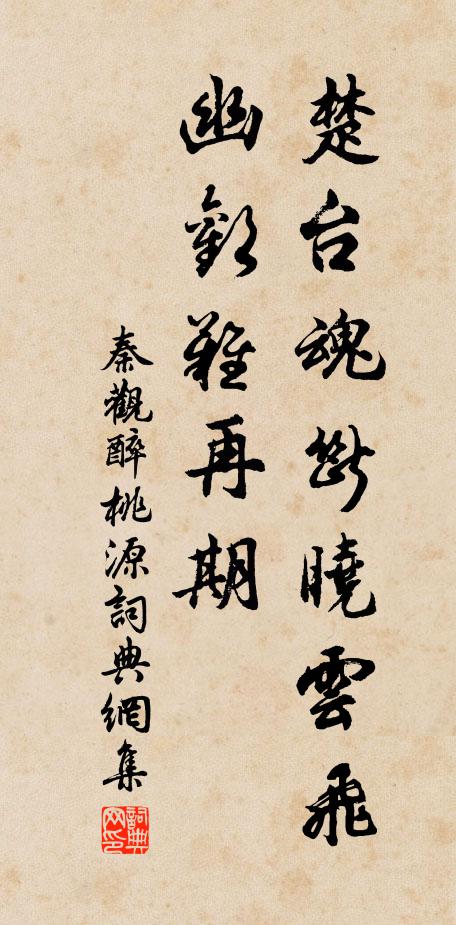 楚台魂断曉雲飛
幽歡難再期
秦觀醉桃源詞典網集
詞典网印